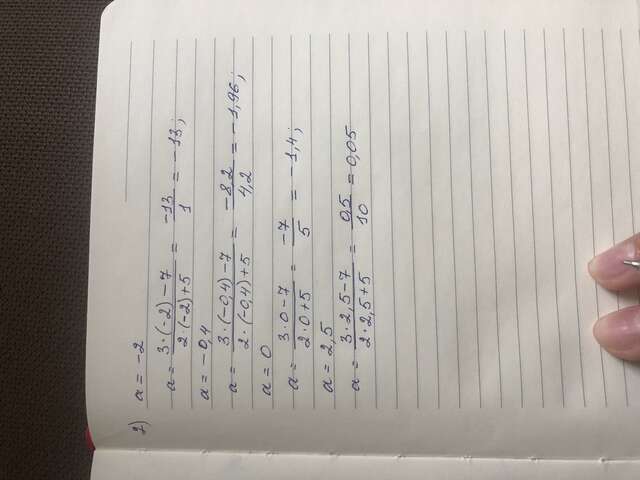 2) a = -2
a = 3·(-2)-7 / 2·(-2)+5 = -13 / 1 = -13;
a = -0,4
a = 3·(-0,4)-7 / 2·(-0,4)+5 = -8,2 / 4,2 = -1,96;
a = 0
a = 3·0-7 / 2·0+5 = -7 / 5 = -1,4;
a = 2,5
a = 3·2,5-7 / 2·2,5+5 = 0,5 / 10 = 0,05